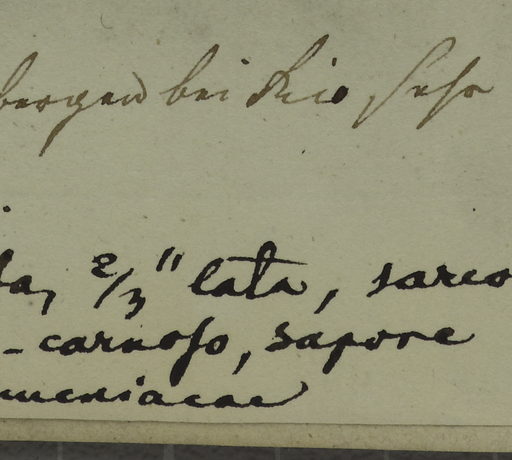 bergen bei Rio sehr
da, 2/3" lata, sarco
-carnoso, sapore
meniacae